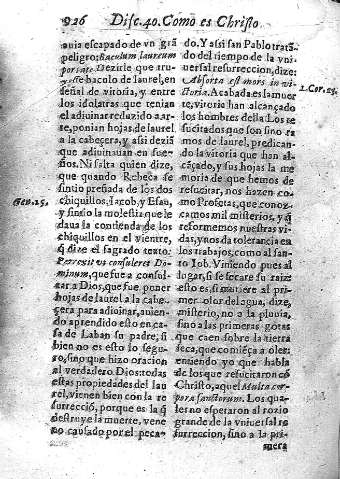 926 Disc. 40. Como es Christo
auia escapado de vn grã
peligro: Baculum laureum
portante. Dezirle que tru-
xeste baculo de laurel, en
señal de vitoria, y entre
los idolatras que tenian
el adiuinar reduzido a ar-
te, ponian hojas de laurel
a la cabeçera, y assi deziã
que adiuinauan en sue-
ños. Ni falta quien dize,
que quando Rebeca se
sintio preñada de los dos
chiquillos, Iacob, y Esau,
Gen. 25.
y sintio la molestia que le
daua la contienda de los
chiquillos en el vientre,
q̃ dize el sagrado texto:
Perrexit vt consuleret Do-
minum, que fue a consul-
tar a Dios, que fue poner
hojas de laurel a la cabe-
çera para adiuinar, auien-
do aprendido esto en ca-
sa de Laban su padre, si
bien no es esto lo segu-
ro, sino que hizo oracion
al verdadero Dios: todas
estas propiedades del lau
rel, vienen bien con la re
surrecciõ, porque es la q̃
destruye la muerte, vene
no causado por el peca-
do. Y assi san Pablo tratã-
do del tiempo de la vni-
uersal resurreccion, dize:
Absorta est mors in vi-
ctoria. Acabada es la muer
1. Cor. 15.
te, vitoria han alcançado
los hombres della. Los re
sucitados que son sino ra
mos de laurel, predican-
do la vitoria que han al-
cãçado, y sus hojas la me
moria de que hemos de
resucitar, nos hazen co-
mo Profetas, que conoz-
camos mil misterios, y q̃
reformemos nuestras vi-
das, y nos da tolerancia en
los trabajos, como al san-
to Iob. Viniendo pues al
lugar, si se secare su raiz
esto es, si muriere al pri-
mer olor del agua, dize,
misterio, no a la pluuia,
sino a las primeras gotas
que caen sobre la tierra
seca, que comiẽça a oler:
entiendo yo que habla
de los que resucitaron cõ
Christo, aquel Multa cor-
pora sanctorum. Los qua-
les no esperaron al rozio
grande de la vniuersal re
surreccion, sino a la pri-
mera